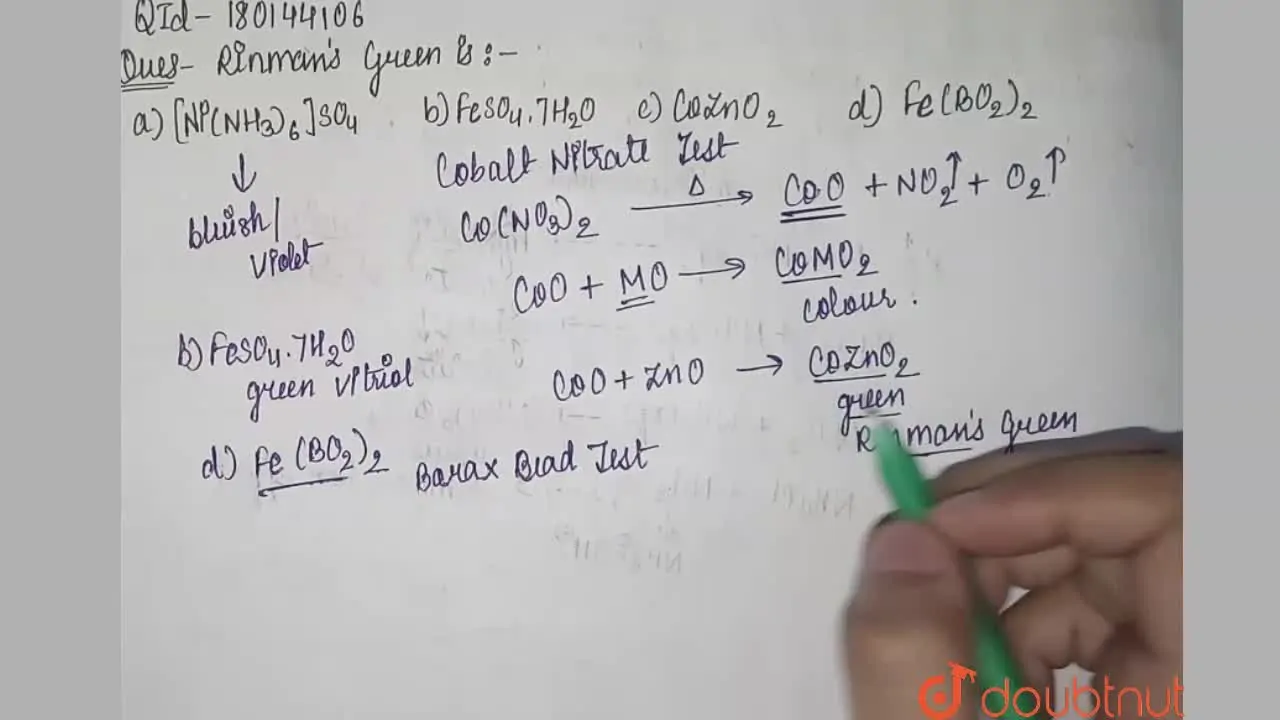 QId - 180144106
Ques - Rinman's Green is :-
a) [Ni(NH3)6]SO4 b) FeSO4.7H2O c) CoZnO2 d) Fe(BO2)2
↓ Cobalt Nitrate Test
bluish/ Co(NO3)2 —Δ→ CoO + NO2↑ + O2↑
violet
CoO + MO → CoMO2
colour.
b) FeSO4.7H2O
green vitriol
CoO + ZnO → CoZnO2
green
Rinman's Green
d) Fe(BO2)2 Barax Bead Test
doubtnut